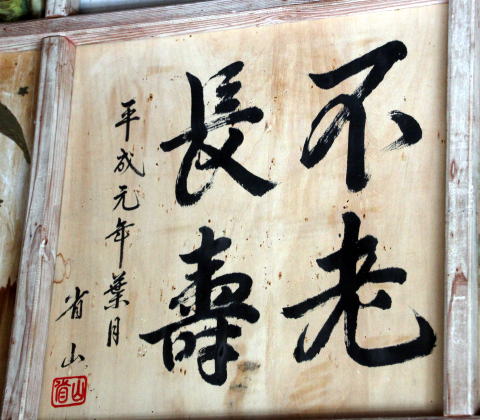 不老
長壽
平成元年葉月
省山
省山